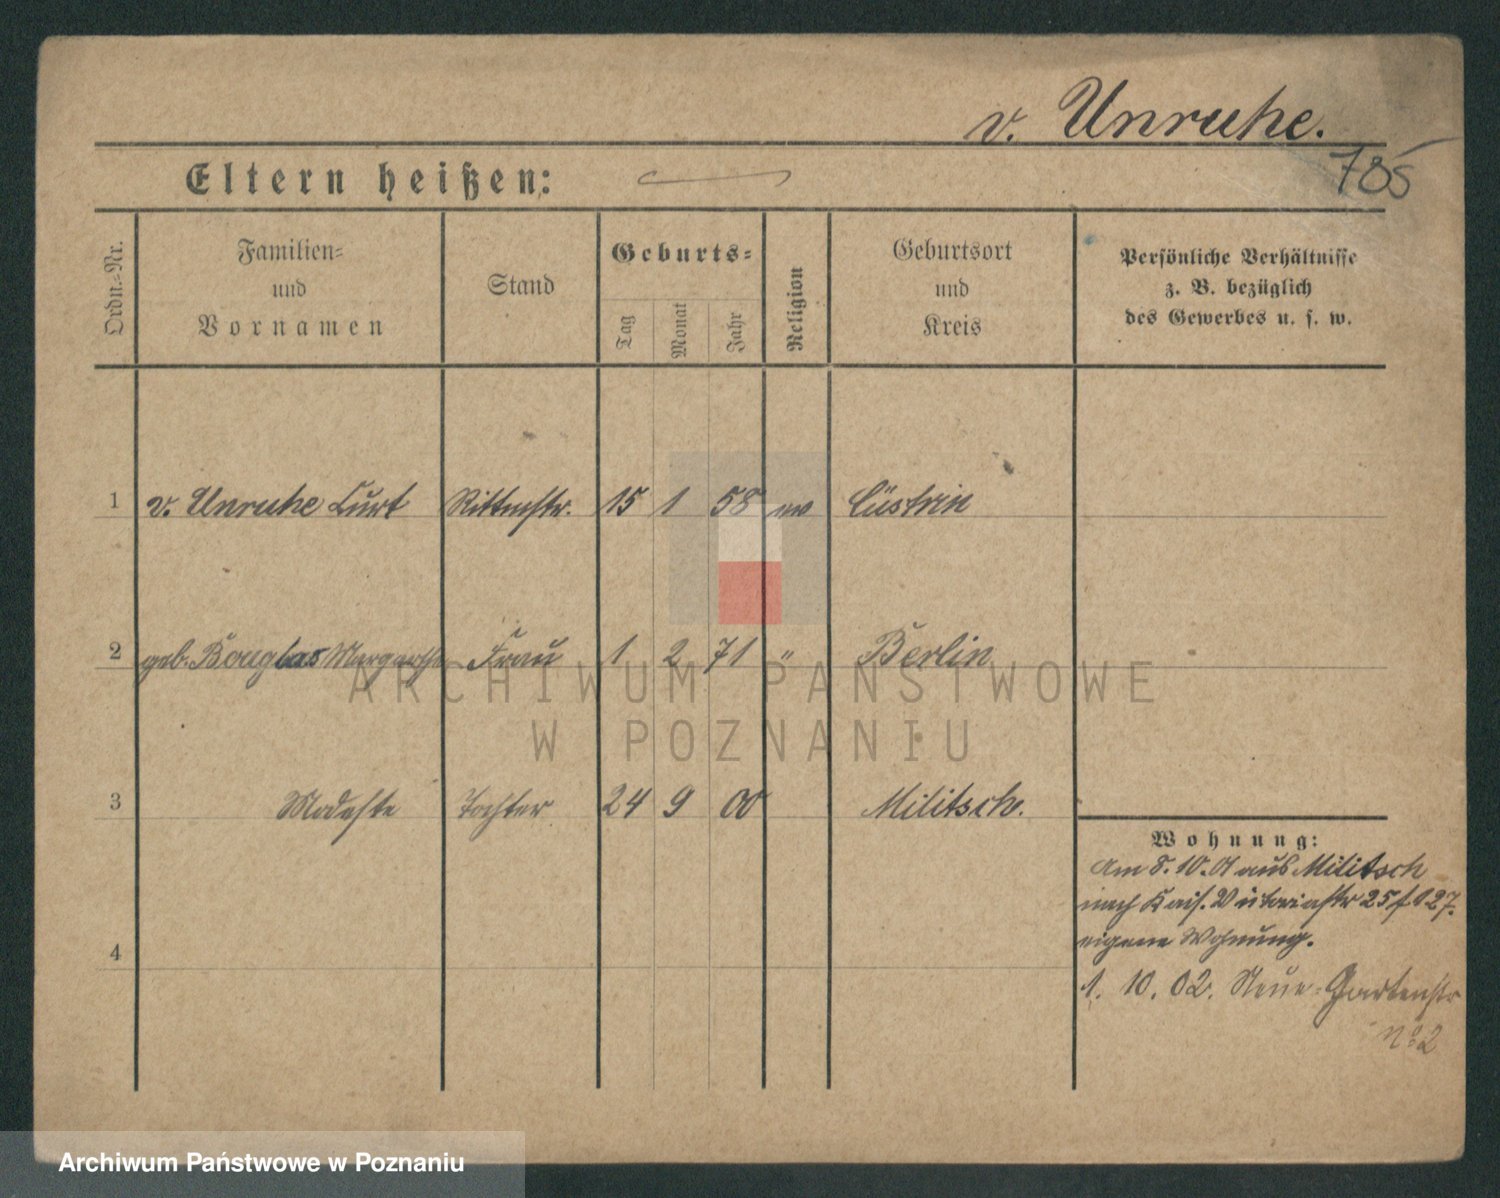 v. Unruhe.
785
Eltern heißen:
Ordn.-Nr.
Familien-
und
Vornamen
Stand
Geburts-
Tag
Monat
Jahr
Religion
Geburtsort
und
Kreis
Persönliche Verhältnisse
z. B. bezüglich
des Gewerbes u. s. w.
1 v. Unruhe Curt Rittmstr. 15 1 58 ev Cüstrin
2 geb. Douglas Margarethe Frau 1 2 71 " Berlin
3 Modeste Tochter 24 9 00 Militsch.
Wohnung:
Am 8. 10. 01 aus Militsch
nach Kais. Viktoriastr 25
eigene Wohnung.
4
1. 10. 02. Neue-Gartenstr
No 2
ARCHIWUM PAŃSTWOWE
W POZNANIU
Archiwum Państwowe w Poznaniu